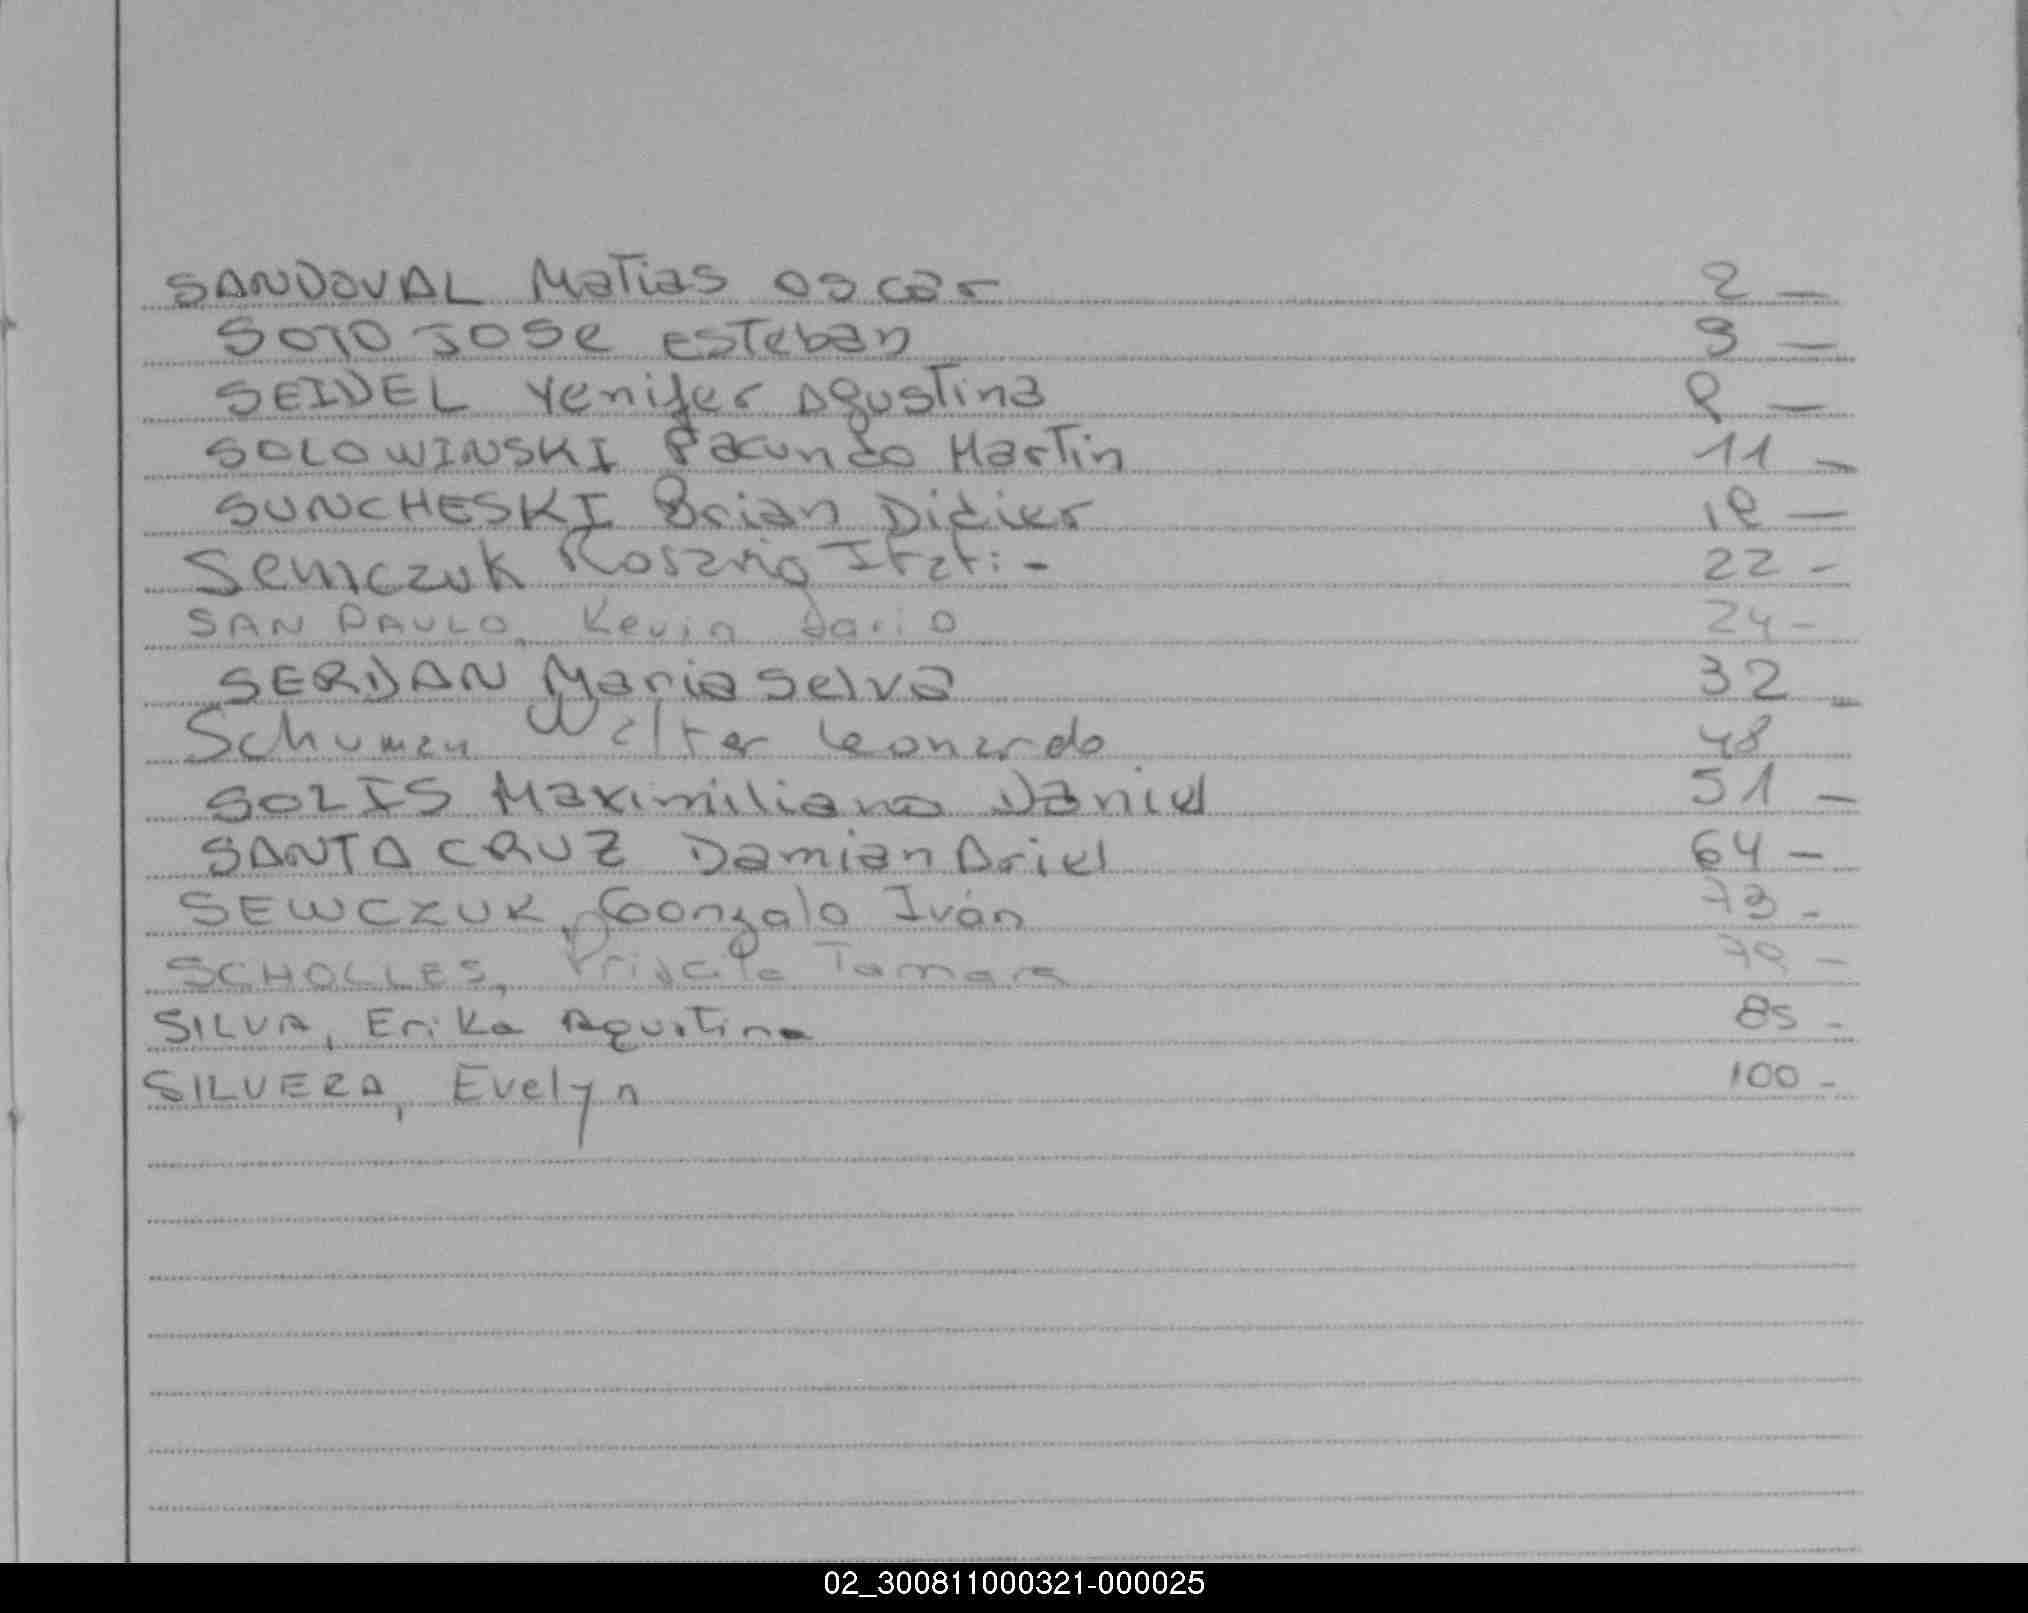 SANDOVAL Matias oscar 2 —
SOTO JOSE esteban 3 —
SEIDEL Yenifer Agustina 8 —
SOLOWINSKI Facundo Martin 11 —
SUNCHESKI Brian Didier 18 —
Semczuk Rosana Itati - 22 -
SAN PAULO, Kevin Dario 24 -
SERDAN Maria Selva 32 —
Schuman Walter Leonardo 48
SOLIS Maximiliano Daniel 51 —
SANTA CRUZ Damian Ariel 64 —
SEWCZUK, Gonzalo Iván 73 -
SCHOLLES, Priscila Tamara 78 -
SILVA, Erika Agustina 85 -
SILVERA, Evelyn 100 -
02_300811000321-000025